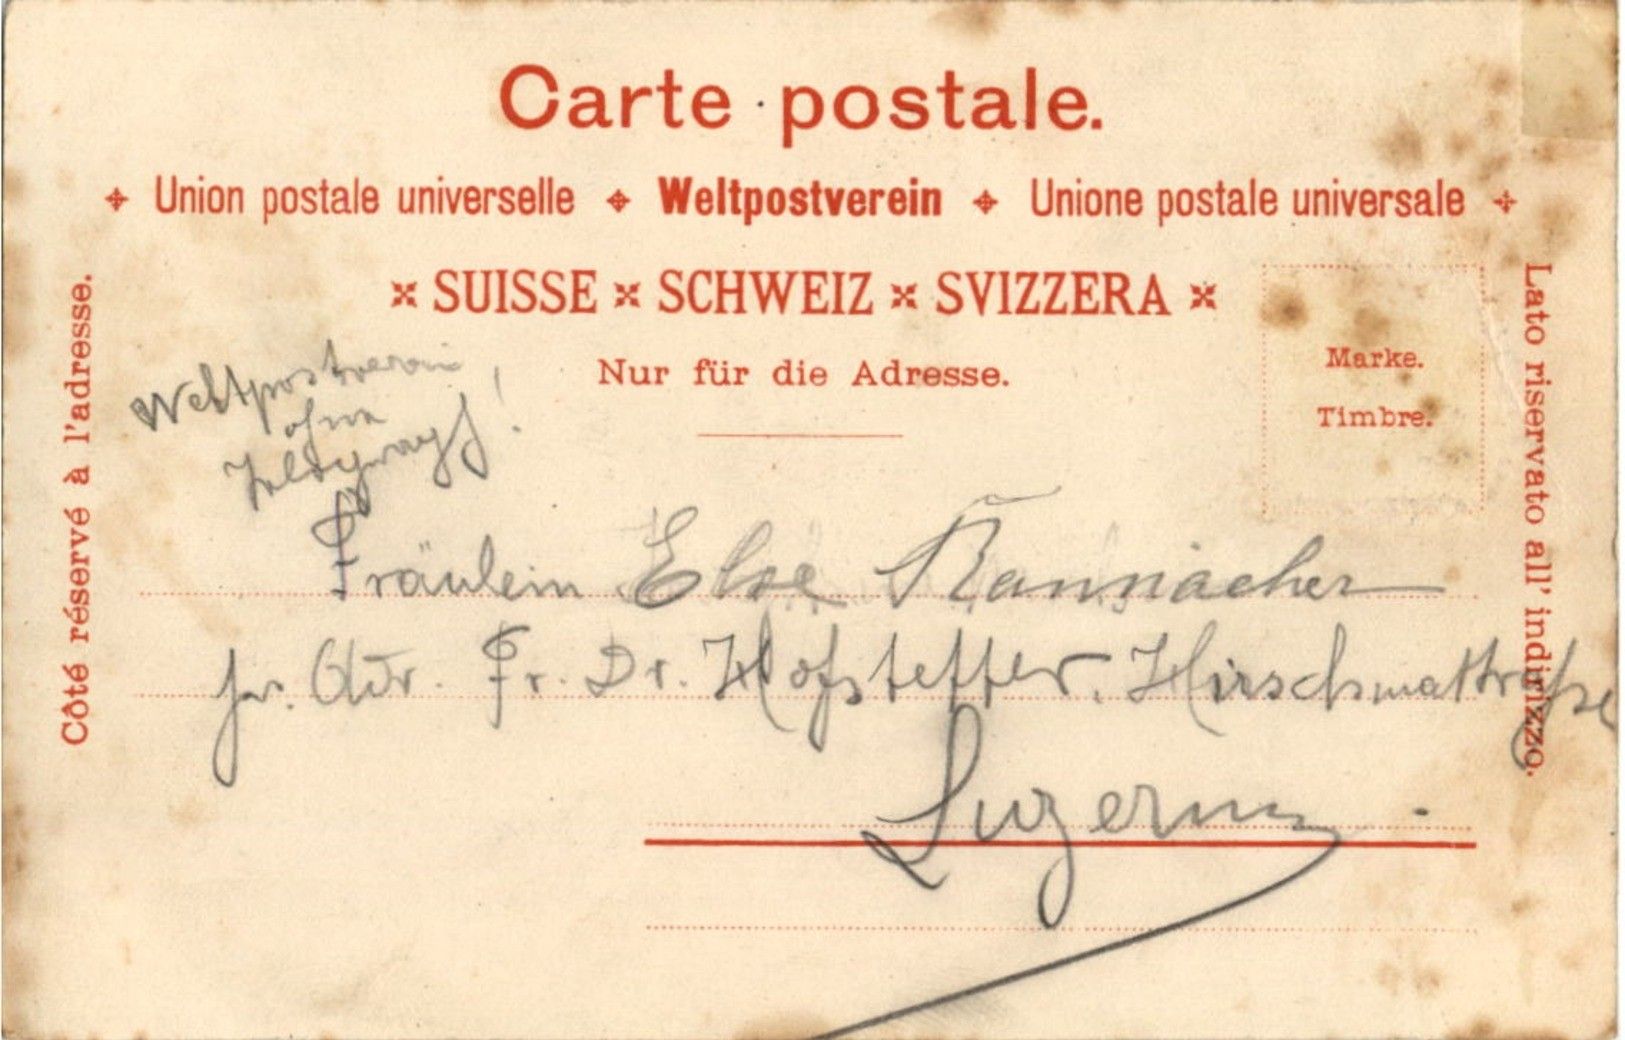 Carte postale.
Union postale universelle Weltpostverein Unione postale universale
SUISSE SCHWEIZ SVIZZERA
Nur für die Adresse.
Marke.
Timbre.
Côté réservé à l'adresse.
Lato riservato all' indirizzo.
Weltpostverein
ohne
!
Fräulein Else
pr. Adr. Fr. Dr. Hofstetter. Hirschmattstraße
Luzern.